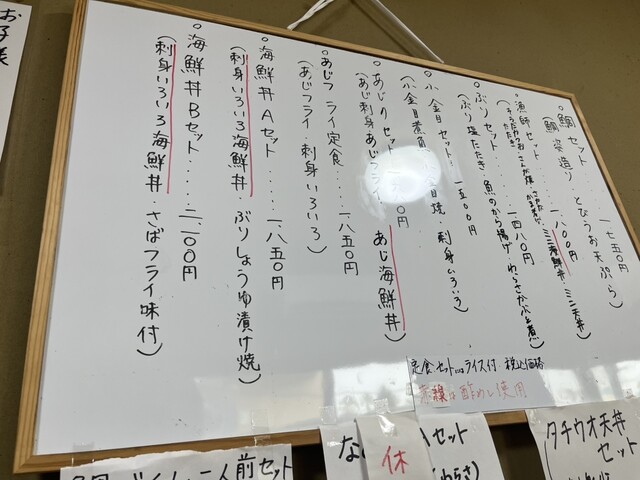 お子様
○鯛セット・・・・一、七五〇円
(鯛姿造り とびうお天ぷら)
漁師セット・・・・一、八〇〇円
ミニ海鮮丼・ミニ天丼)
○ぶりセット・・・・一、四八〇円
(ぶり塩たたき 魚のから揚げ・わらさかぶと煮)
○小金目セット・・・・一、五〇〇円
刺身いろいろ)
○あじ
円
(あじ刺身あじフライ あじ海鮮丼)
○あじフライ定食・・・・一、八五〇円
(あじフライ 刺身いろいろ)
○海鮮丼Aセット・・・・一、八五〇円
(刺身いろいろ海鮮丼 ぶりしょうゆ漬け焼)
○海鮮丼Bセット・・・・二、一〇〇円
(刺身いろいろ海鮮丼・さばフライ味付)
定食セットはライス付・税込価格
赤線は酢めし使用
タチウオ天丼
セット
Aセット
休
二人前セット